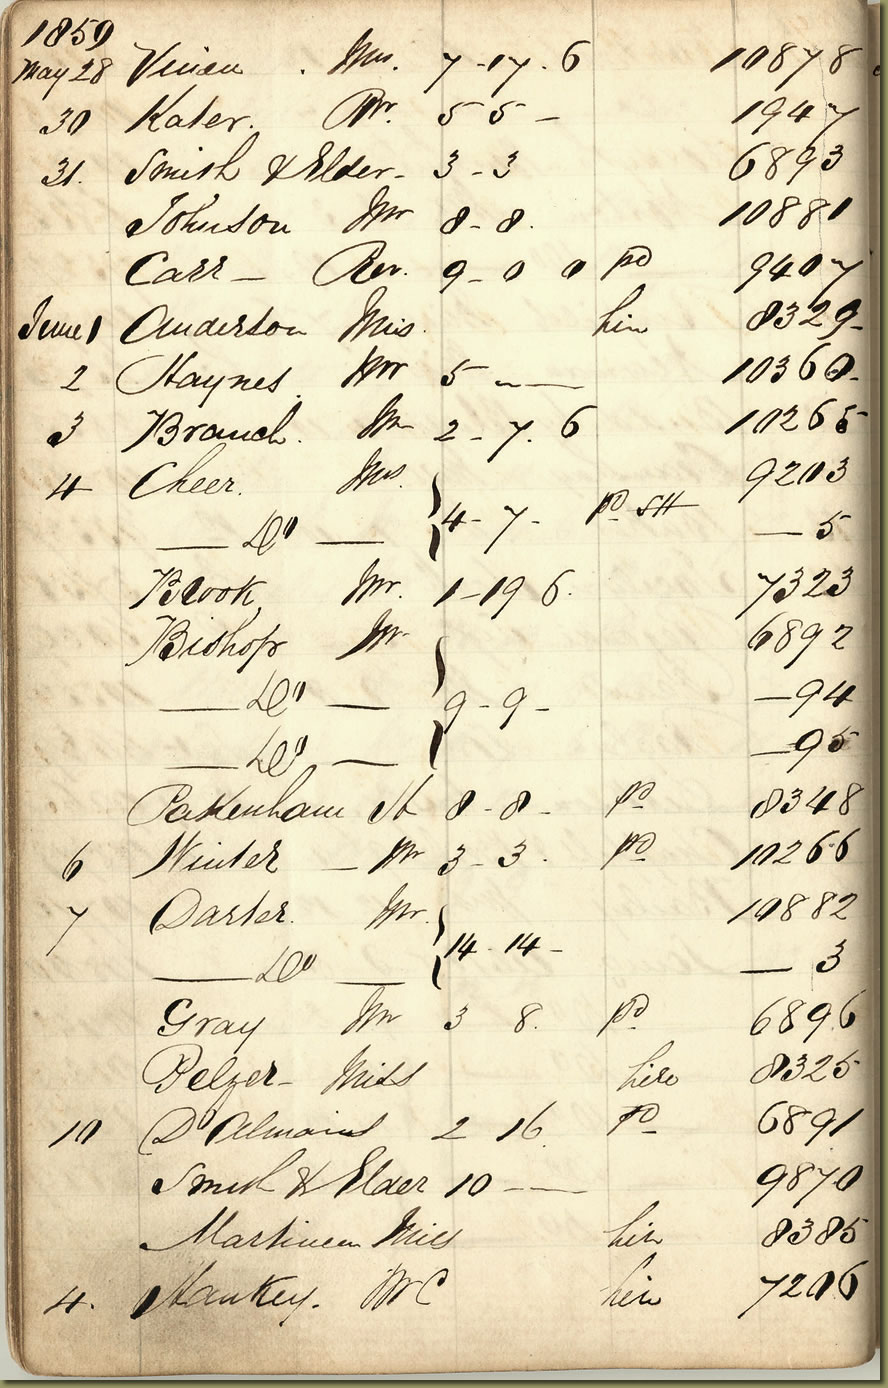 1859
May 28 Vinen . Mrs. 7-17.6 10878
30 Kater. Mr. 5 5 - 1947
31. Smith & Elder - 3-3 6893
Johnson Mr 8-8. 10881
Carr - Rev. 9-0 0 pd 9407
June 1 Anderson Mis. hire 8329-
2 Haynes. Mr 5 - - 10360-
3 Branch. Mr 2-7.6 10265
4 Cheer. Mrs. 9203
— Do — 4-7- Pd SH — 5
Brook Mr. 1-19 6. 7323
Bishop Mr 6892
— Do — 9-9- —94
— Do — —95
Pakenham St 8-8- pd 8348
6 Winter — Mr 3-3. pd 10266
7 Darter. Mr. 10882
— Do — 14-14- — 3
Gray Mr 3 8. pd 6896
Pelzer- Miss hire 8325
10 D'Almaine 2 16. pd 6891
Smith & Elder 10 - — 9870
Martineau Miss hire 8385
4. Hankey. W C hire 7206